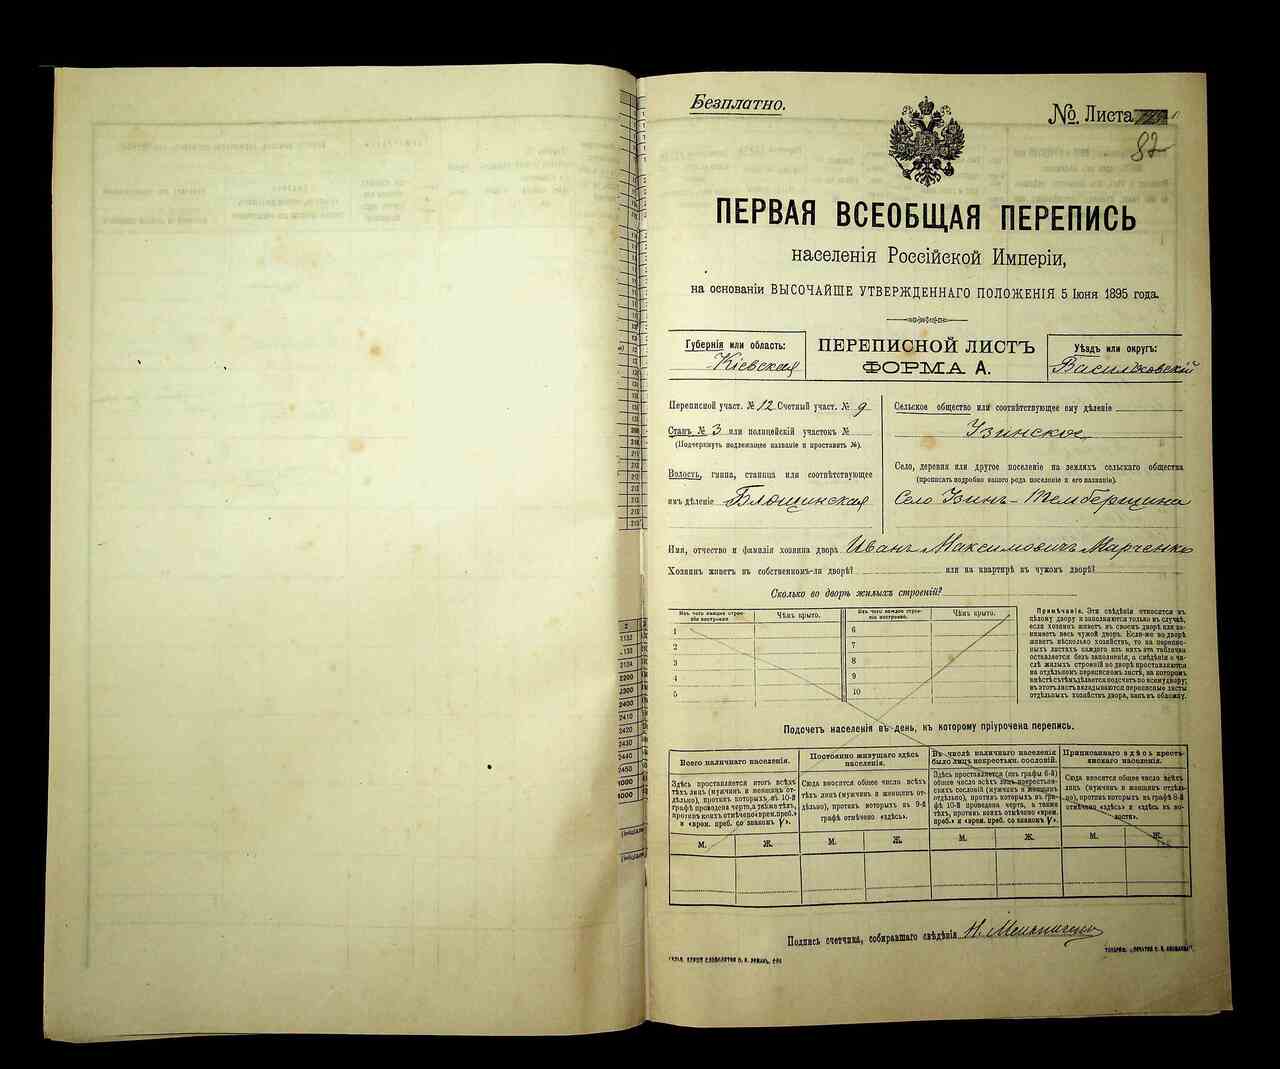 Безплатно.
№ Листа
82
ПЕРВАЯ ВСЕОБЩАЯ ПЕРЕПИСЬ
населенія Россійской Имперіи,
на основаніи ВЫСОЧАЙШЕ УТВЕРЖДЕННАГО ПОЛОЖЕНІЯ 5 Іюня 1895 года.
Губернія или область:
Кіевская
ПЕРЕПИСНОЙ ЛИСТЪ
ФОРМА А.
Уѣздъ или округъ:
Васильковскій
Переписной участ. № 12 Счетный участ. № 9
Станъ № 3 или полицейскій участокъ №
(Подчеркнуть подлежащее названіе и проставить №).
Волость, гмина, станица или соотвѣтствующее
имъ дѣленіе Блощинская
Сельское общество или соотвѣтствующее ему дѣленіе
Узинское
Село, деревня или другое поселеніе на земляхъ сельскаго общества
(прописать подробно какого рода поселеніе и его названіе).
Село Узинъ-Темберщина
Имя, отчество и фамилія хозяина двора Иванъ Максимовичъ Марченко
Хозяинъ живетъ въ собственномъ-ли дворѣ? или на квартирѣ въ чужомъ дворѣ?
Сколько во дворѣ жилыхъ строеній?
Изъ чего каждое строеніе построено.
Чѣмъ крыто.
Изъ чего каждое строеніе построено.
Чѣмъ крыто.
1
2
3
4
5
6
7
8
9
10
Примѣчаніе. Эти свѣдѣнія относятся къ
цѣлому двору и заполняются только въ случаѣ,
если хозяинъ живетъ въ своемъ дворѣ или занимаетъ
весь чужой дворъ. Если-же во дворѣ
живетъ нѣсколько хозяйствъ, то на переписныхъ
листахъ каждаго изъ нихъ эта табличка
оставляется безъ заполненія, а свѣдѣнія о числѣ
жилыхъ строеній во дворѣ проставляются
на отдѣльномъ переписномъ листѣ, на которомъ
вмѣстѣ съ тѣмъ дѣлается подсчетъ по всему двору;
въ этотъ листъ вкладываются переписные листы
отдѣльныхъ хозяйствъ двора, какъ въ обложку.
Подсчетъ населенія въ день, къ которому пріурочена перепись.
Всего наличнаго населенія.
Здѣсь проставляется итогъ всѣхъ
тѣхъ лицъ (мужчинъ и женщинъ отдѣльно),
противъ которыхъ въ 10-й
графѣ проведена черта, а также тѣхъ,
противъ коихъ отмѣчено «врем. преб.»
и «врем. преб. со знакомъ V».
Постоянно живущаго здѣсь
населенія.
Сюда вносится общее число всѣхъ
тѣхъ лицъ (мужчинъ и женщинъ отдѣльно),
противъ которыхъ въ 9-й
графѣ отмѣчено «здѣсь».
Въ числѣ наличнаго населенія
было лицъ некрестьян. сословій.
Здѣсь проставляется (изъ графы 6-й)
общее число всѣхъ лицъ некрестьянскихъ
сословій (мужчинъ и женщинъ
отдѣльно), противъ которыхъ въ графѣ
10-й проведена черта, а также
тѣхъ, противъ коихъ отмѣчено «врем.
преб.» и «врем. преб. со знакомъ V».
Приписаннаго здѣсь крестьянскаго
населенія.
Сюда вносится общее число всѣхъ
лицъ (мужчинъ и женщинъ отдѣльно),
противъ которыхъ въ графѣ 8-й
отмѣчено «здѣсь» и «здѣсь въ волости».
М. Ж. М. Ж. М. Ж. М. Ж.
Подпись счетчика, собиравшаго свѣдѣнія